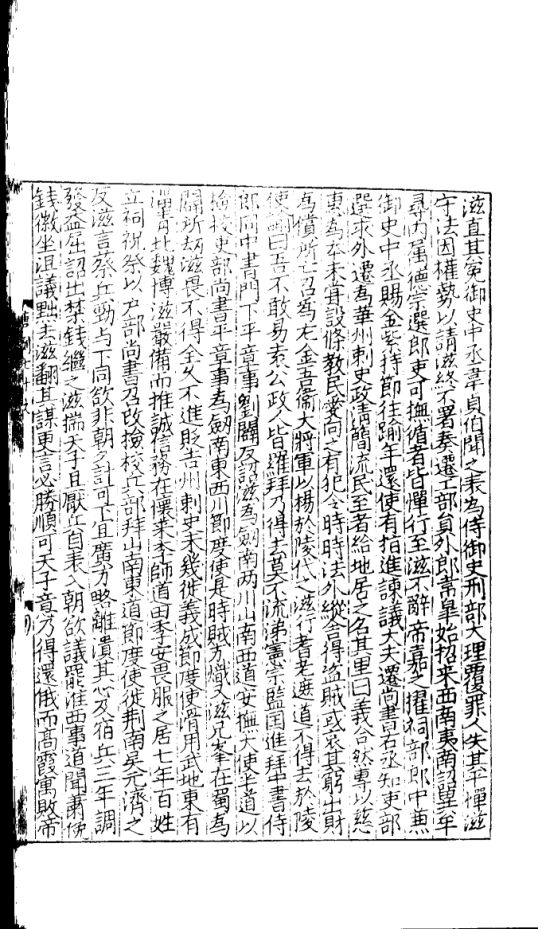 滋直其冤御史中丞韋貞伯聞之表為侍御史刑部大理覆罪人失其平憚滋
守法因權勢以請滋終不署奏遷工部員外郎韋皋始招來西南夷南詔異牟
尋內屬德宗選郎吏可撫循者皆憚行至滋不辭帝嘉之擢祠部郎中兼
御史中丞賜金紫持節往踰年還使有指進諫議大夫遷尚書右丞知吏部
選求外遷為華州刺史政清簡流民至者給地居之名其里曰義合然專以慈
惠為本未嘗設條教民愛向之有犯令時時法外縱舍得盜賊或哀其窮出財
為償所亡召為左金吾衛大將軍以楊於陵代之滋行者老遮道不得去於陵
使諭曰吾不敢易袁公政人皆羅拜乃得去莫不流涕憲宗監國進拜中書侍
郎同中書門下平章事劉闢反詔滋為劍南兩川山南西道安撫大使半道以
檢校吏部尚書平章事為劍南東西川節度使是時賊方熾又滋兄峯在蜀為
闢所劫滋畏不得全久不進貶吉州刺史未幾徙義成節度使滑用武地東有
淄青北魏博滋嚴備而推誠信務在懷來李師道田季安畏服之居七年百姓
立祠祝祭以戶部尚書召改檢校兵部拜山南東道節度使徙荊南吳元濟之
反滋言蔡兵勁與下同欲非朝夕計可下宜廣方略離潰其心及宿兵三年調
發益屈詔出禁錢繼之滋揣天子且厭兵自表入朝欲議罷淮西事道聞蕭俛
錢徽坐沮議黜去滋翻其謀更言必勝順可天子意乃得還俄而高霞寓敗帝